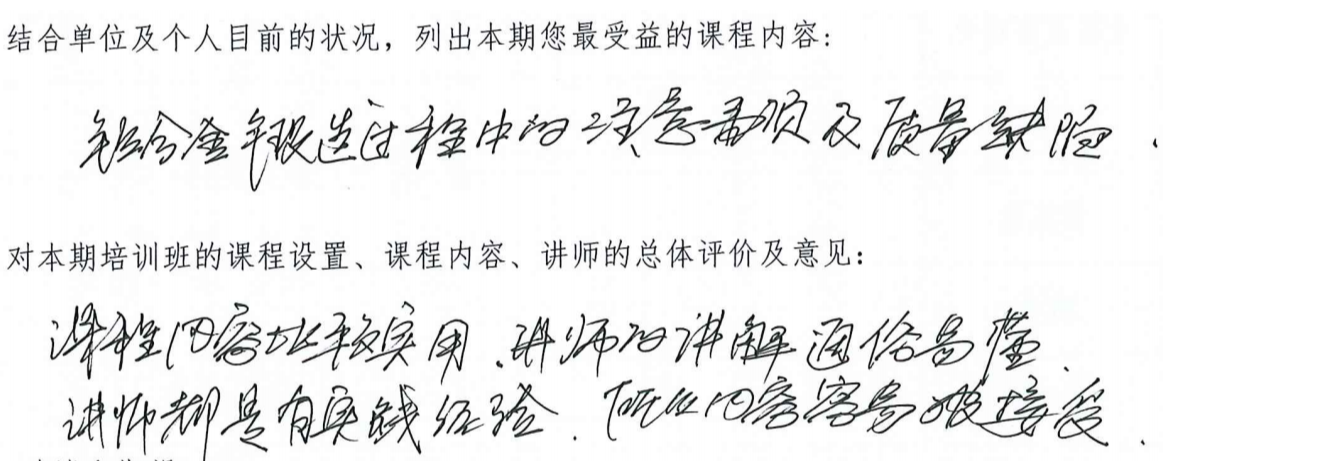 结合单位及个人目前的状况，列出本期您最受益的课程内容：
铝合金锻造过程中的注意事项及质量缺陷.
对本期培训班的课程设置、课程内容、讲师的总体评价及意见：
课程内容比较实用.讲师的讲解通俗易懂.
讲师都是有实践经验.所以内容容易被接受.